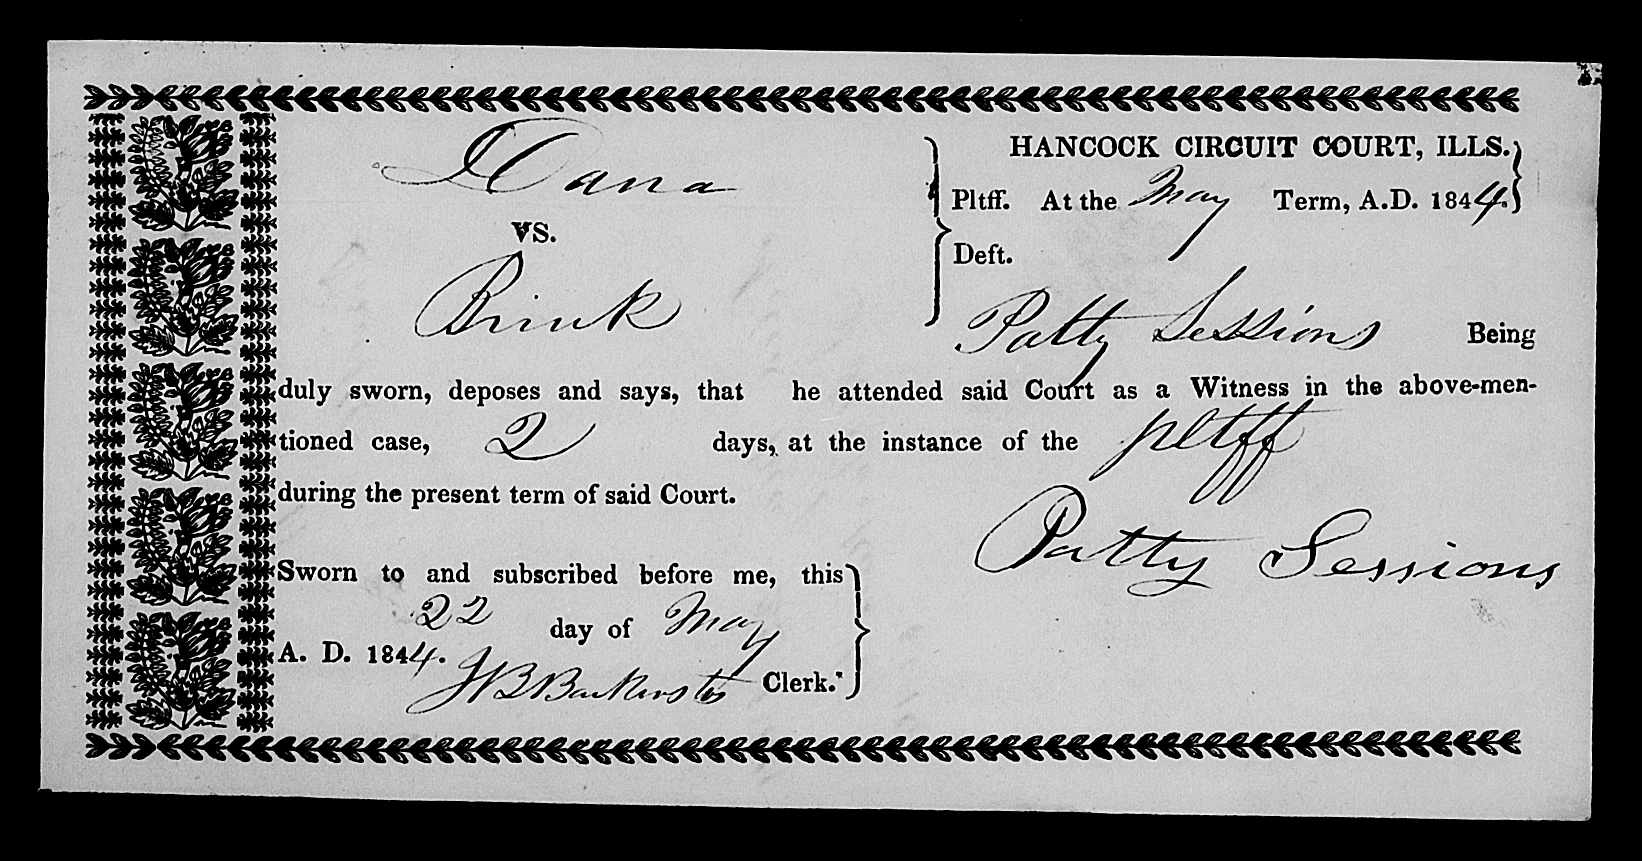 HANCOCK CIRCUIT COURT, ILLS.
Dana
Pltff. At the May Term, A.D. 1844.
vs.
Deft.
Brink
Patty Sessions Being
duly sworn, deposes and says, that he attended said Court as a Witness in the above-men-
tioned case, 2 days, at the instance of the pltff
during the present term of said Court.
Patty Sessions
Sworn to and subscribed before me, this
22 day of May
A. D. 1844.
J B Backenstos Clerk.